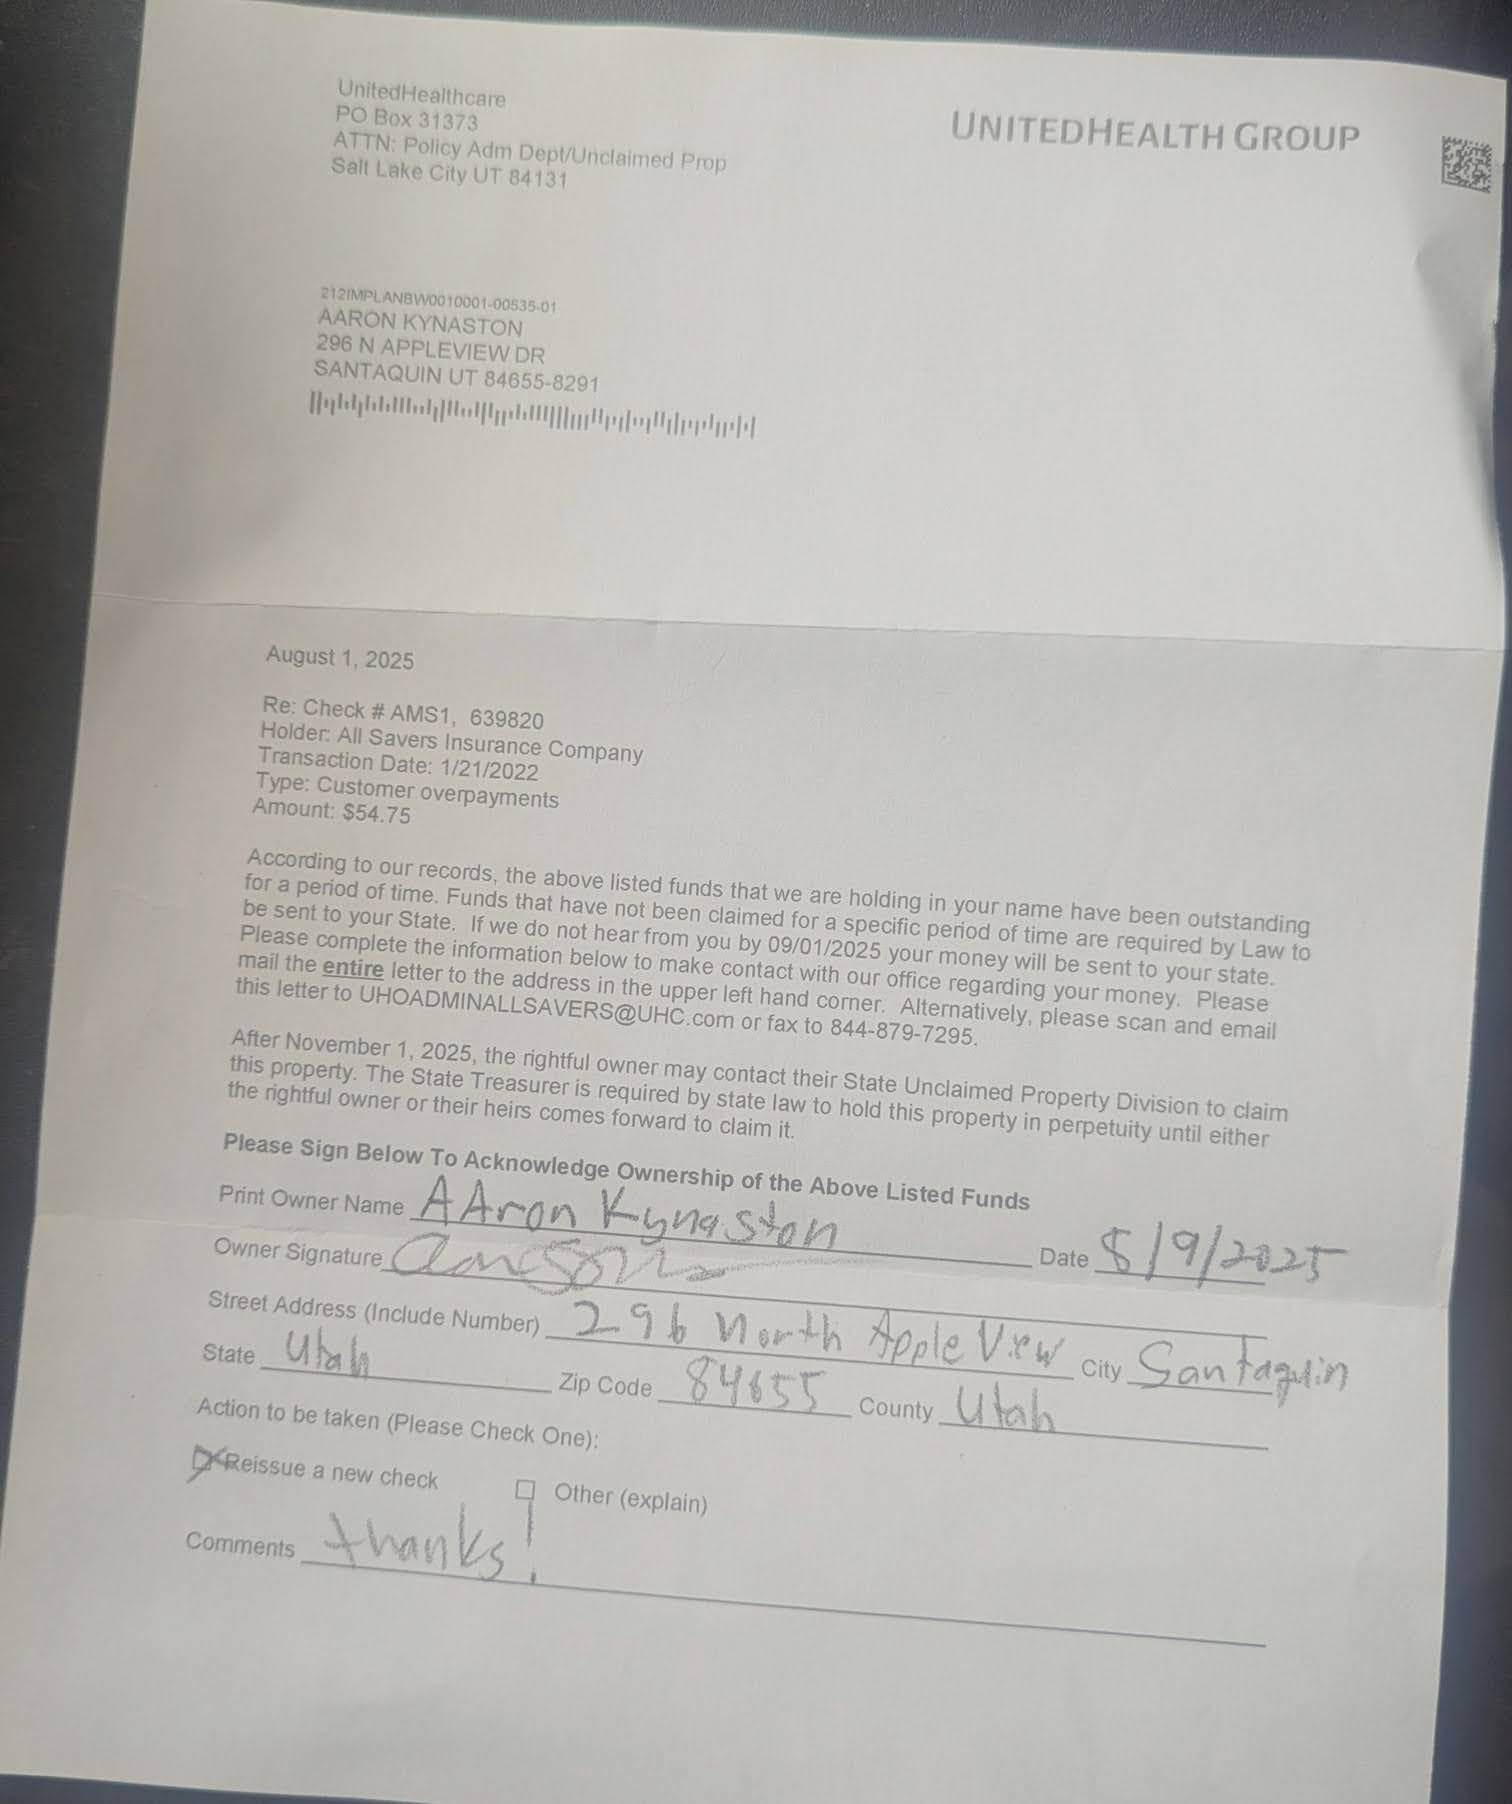 UnitedHealthcare
PO Box 31373
ATTN: Policy Adm Dept/Unclaimed Prop
Salt Lake City UT 84131
UNITEDHEALTH GROUP
212IMPLANBW0010001-00535-01
AARON KYNASTON
296 N APPLEVIEW DR
SANTAQUIN UT 84655-8291
August 1, 2025
Re: Check # AMS1, 639820
Holder: All Savers Insurance Company
Transaction Date: 1/21/2022
Type: Customer overpayments
Amount: $54.75
According to our records, the above listed funds that we are holding in your name have been outstanding
for a period of time. Funds that have not been claimed for a specific period of time are required by Law to
be sent to your State. If we do not hear from you by 09/01/2025 your money will be sent to your state.
Please complete the information below to make contact with our office regarding your money. Please
mail the entire letter to the address in the upper left hand corner. Alternatively, please scan and email
this letter to UHOADMINALLSAVERS@UHC.com or fax to 844-879-7295.
After November 1, 2025, the rightful owner may contact their State Unclaimed Property Division to claim
this property. The State Treasurer is required by state law to hold this property in perpetuity until either
the rightful owner or their heirs comes forward to claim it.
Please Sign Below To Acknowledge Ownership of the Above Listed Funds
Print Owner Name AAron Kynaston Date 8/9/2025
Owner Signature
Street Address (Include Number) 296 North Apple View City Santaquin
State Utah Zip Code 84655 County Utah
Action to be taken (Please Check One):
Reissue a new check Other (explain)
Comments thanks!